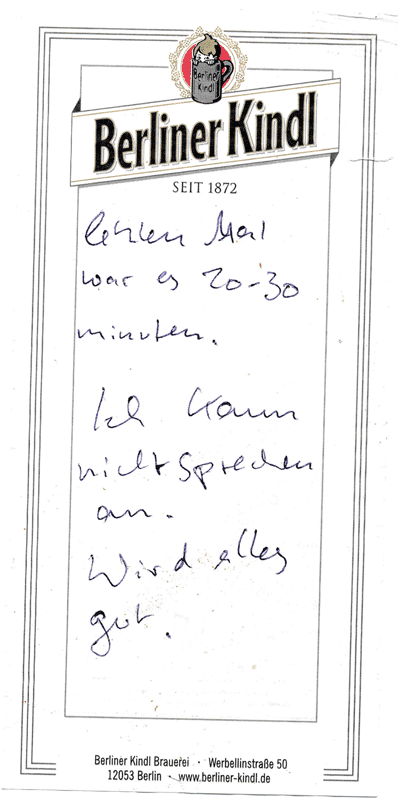 Berliner Kindl
Berliner Kindl
SEIT 1872
letzten Mal
war es 20-30
minuten.
Ich kann
nicht sprechen
an.
Wird alles
gut.
Berliner Kindl Brauerei · Werbellinstraße 50
12053 Berlin · www.berliner-kindl.de